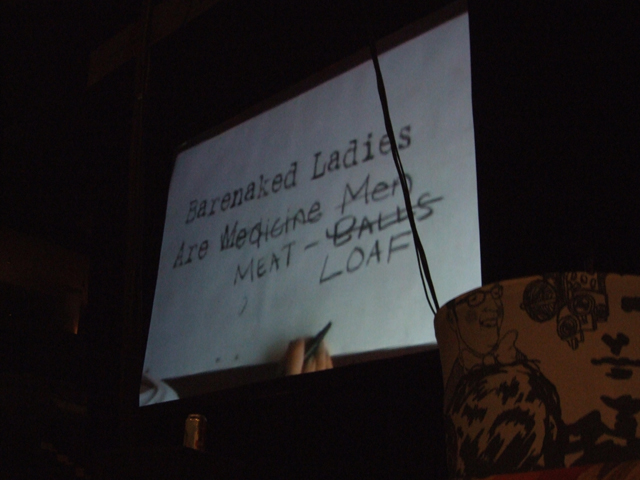 Barenaked Ladies
Are Medicine Men
MEAT - BALLS
LOAF